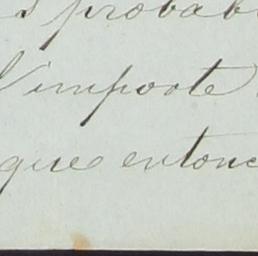 s probab
l'importe
que entonc